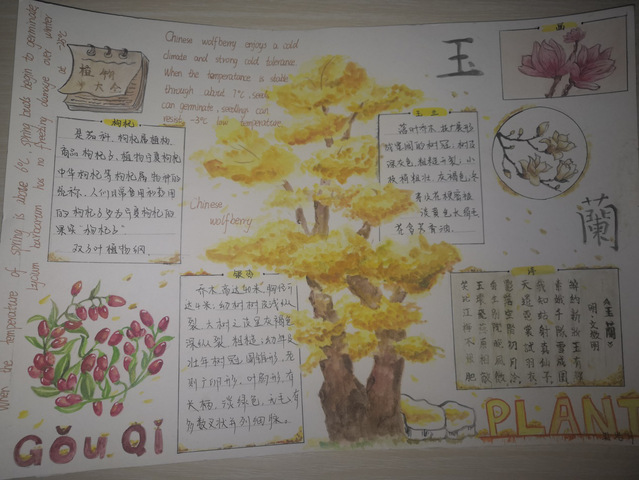 When the temperature of spring is above 6℃ spring buds begin to germinate
lycium barbarum has no freezing damage over winter
at -25℃
植物
Chinese wolfberry enjoys a cold
climate and strong cold tolerance.
When the temperature is stable
through about 7℃, seeds
can germinate, seedlings can
resist -3℃ low temperature.
枸杞
是茄科、枸杞属植物.
商品枸杞子、植物宁夏枸杞
中华枸杞等枸杞属物种的
统称.人们日常食用和药用
的枸杞子多为宁夏枸杞的
果实"枸杞子".
双子叶植物纲
Chinese
wolfberry
GǒuQǐ
银杏
乔木,高达40米,胸径可
达4米;幼树树皮浅纵
裂,大树之皮呈灰褐色
深纵裂,粗糙;幼年及
壮年树冠圆锥形,老
则广卵形.叶扇形,有
长柄,淡绿色,无毛,有
多数叉状并列细脉.
玉
蘭
画
玉兰
落叶乔木,枝广展形
成宽阔的树冠,树皮
深灰色,粗糙开裂;小
枝稍粗壮,灰褐色;冬
芽及花梗密被
淡黄色长绢毛
诗
《玉蘭》
明·文徵明
绰约新妆玉有辉
素娥千队雪成围
我知姑射真仙子
天遣霓裳试羽衣
影落空阶初月冷
香生别院晚风微
玉环飞燕元相敌
笑比江梅不恨肥
PLANT